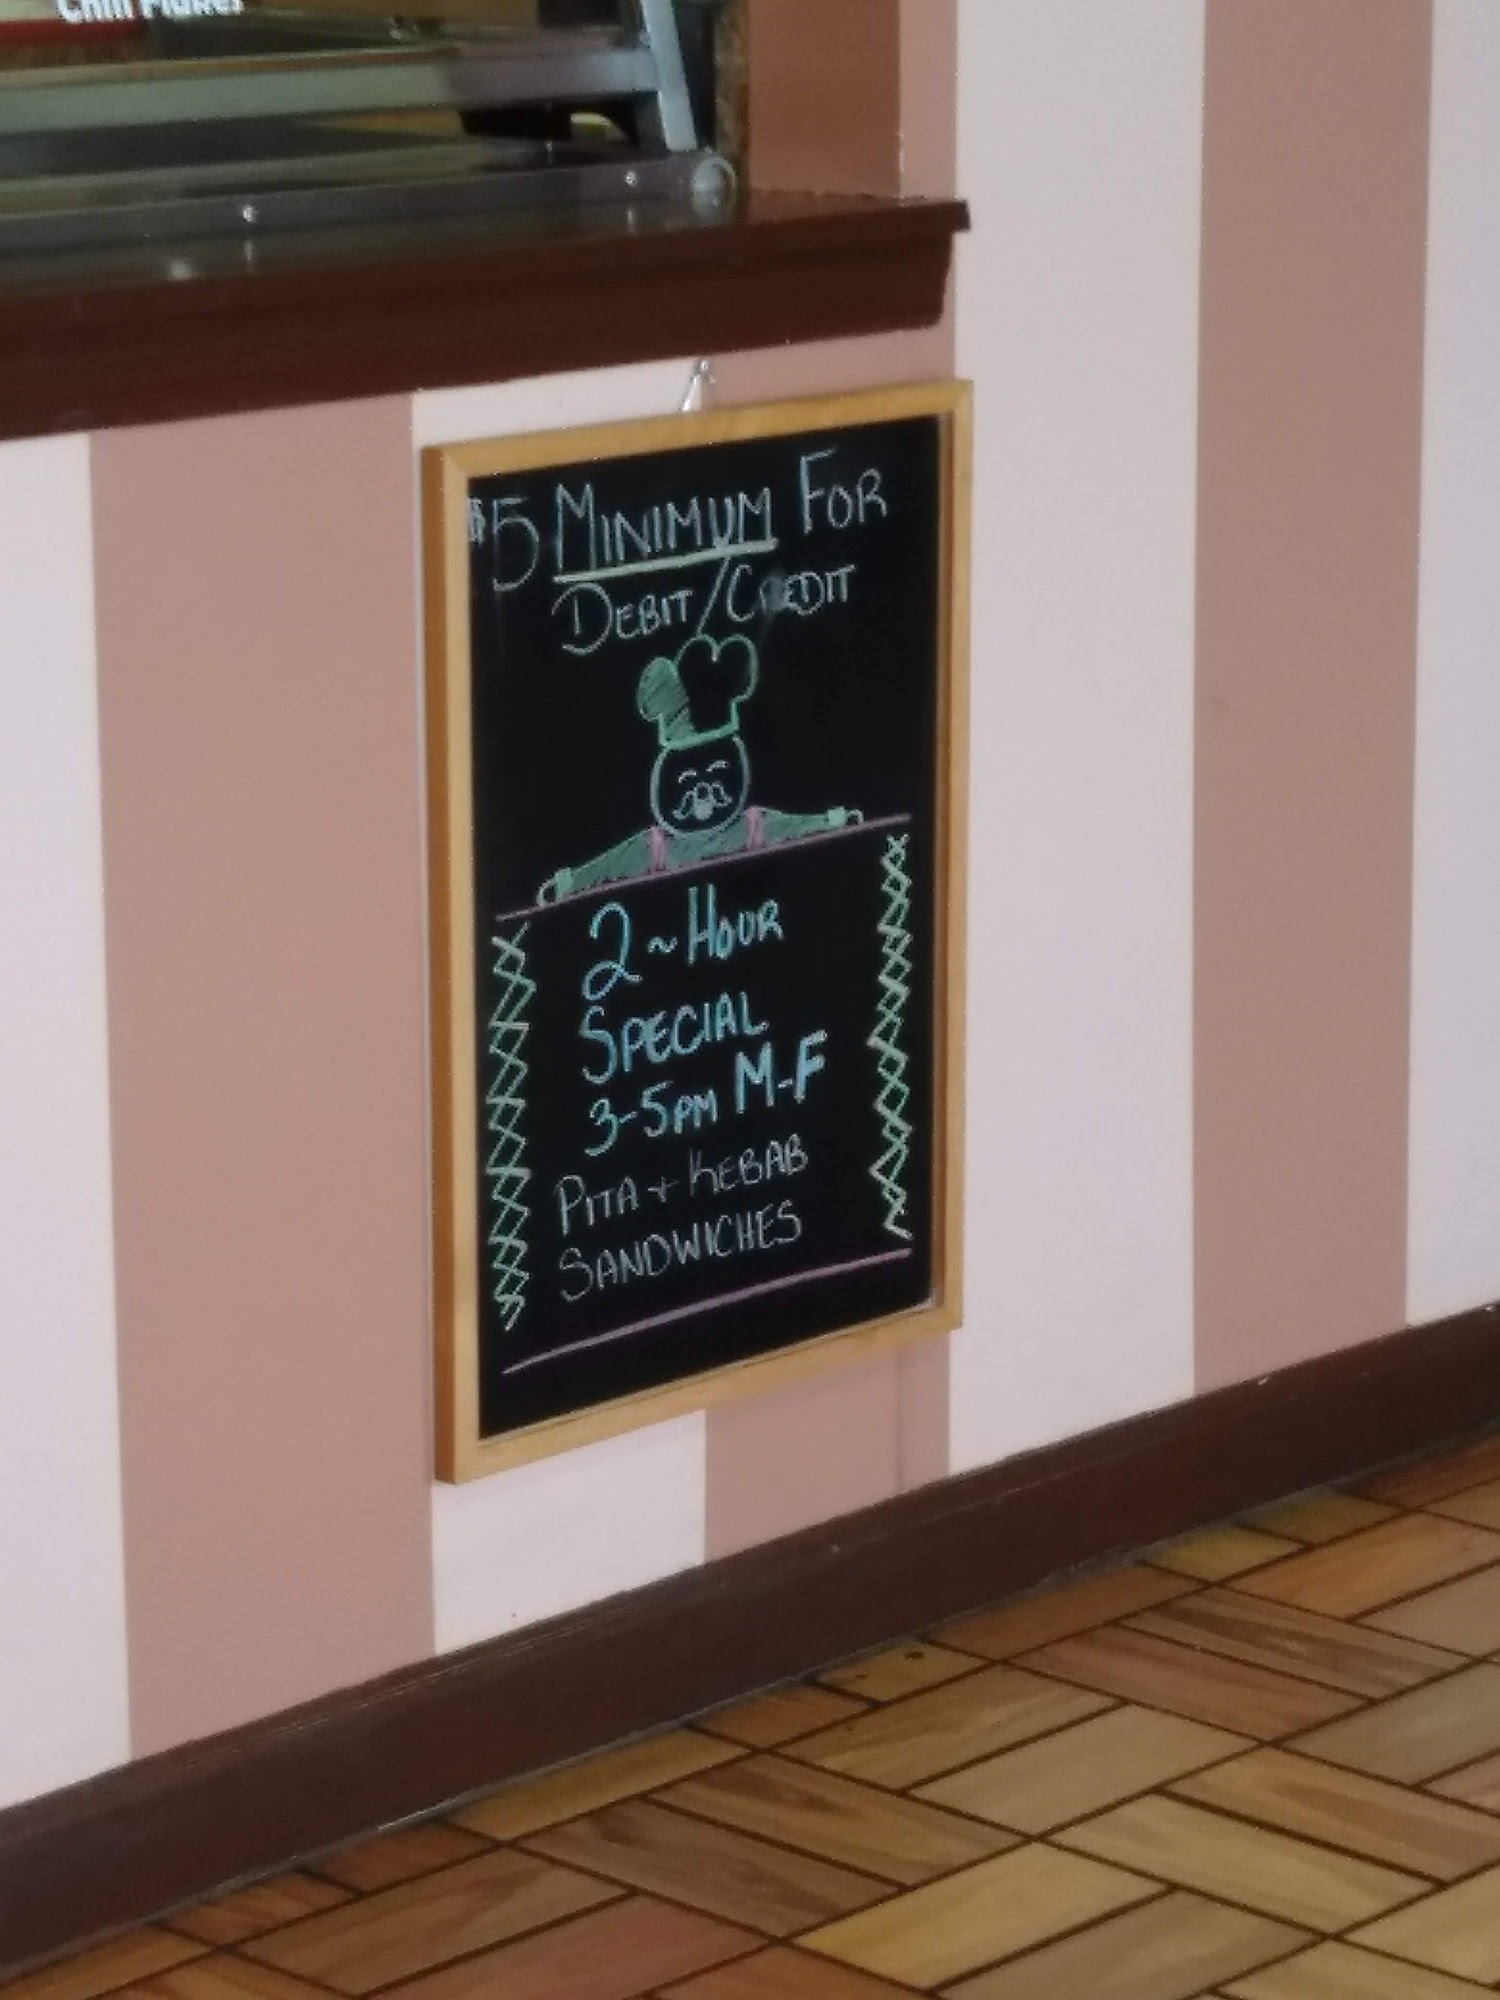 $5 MINIMUM FOR
DEBIT/CREDIT
2~HOUR
SPECIAL
3-5PM M-F
PITA + KEBAB
SANDWICHES